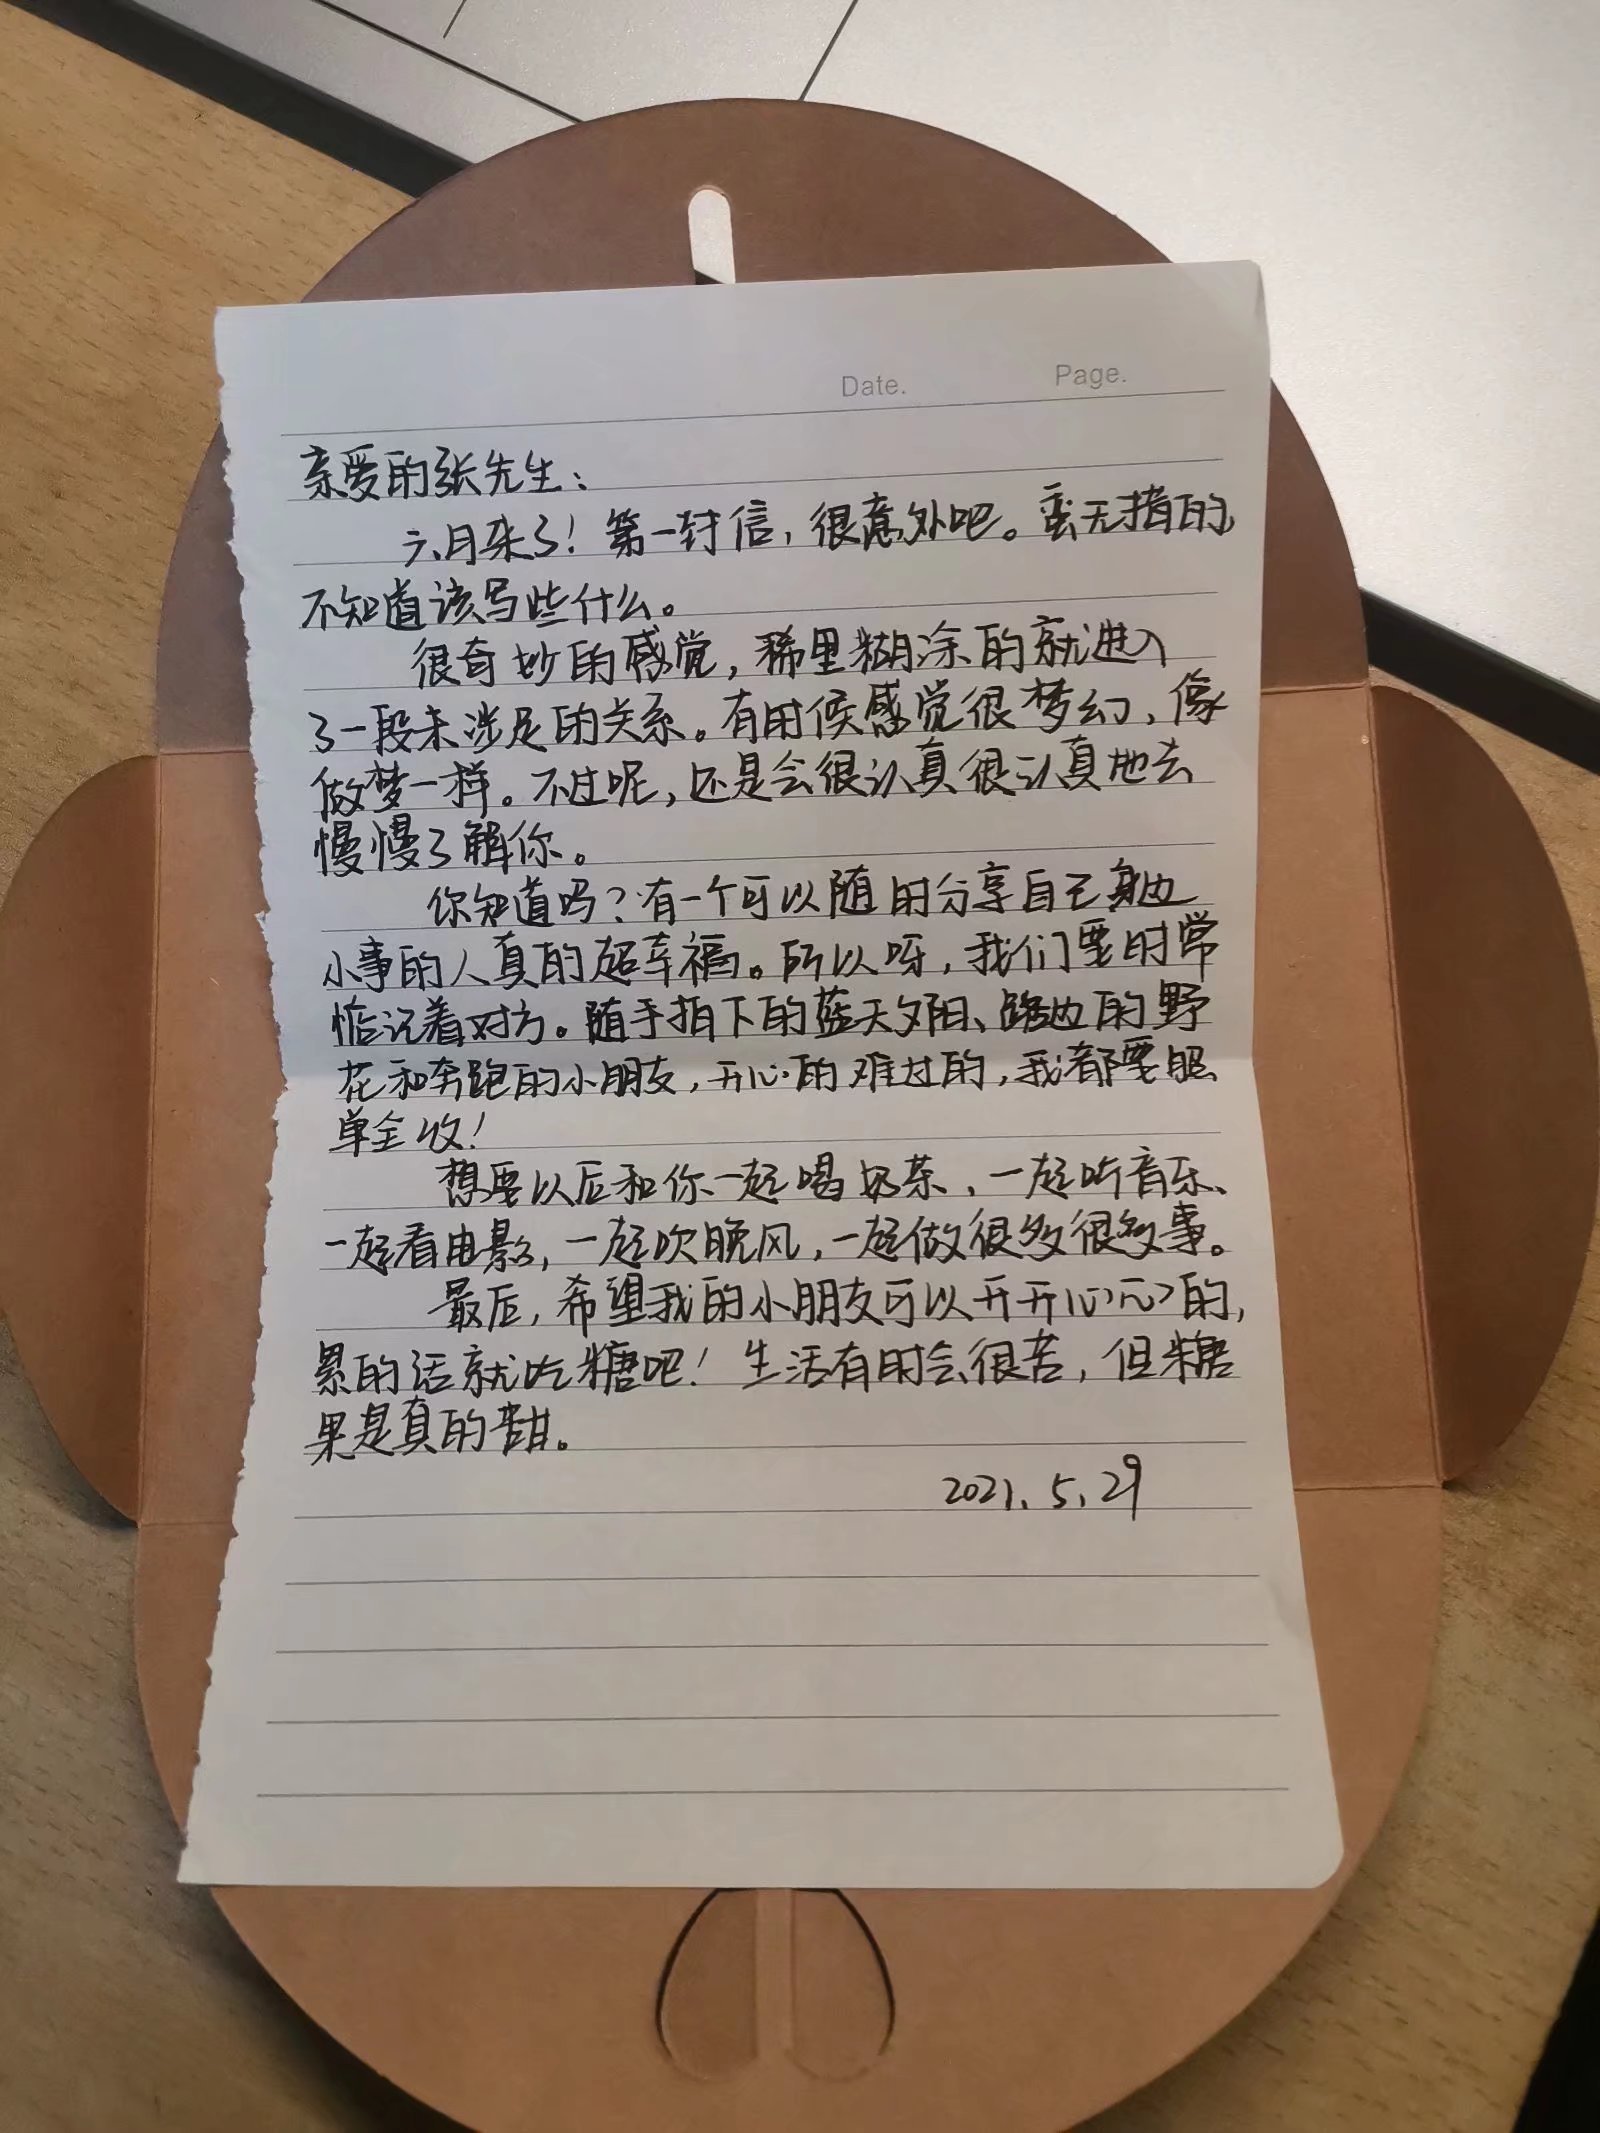 Date. Page.
亲爱的张先生：
六月来了！第一封信，很意外吧。蛮无措的，
不知道该写些什么。
很奇妙的感觉，稀里糊涂的就进入
了一段未涉足的关系。有时候感觉很梦幻、像
做梦一样。不过呢，还是会很认真很认真地去
慢慢了解你。
你知道吗？有一个可以随时分享自己身边
小事的人真的超幸福。所以呀，我们要时常
惦记着对方。随手拍下的蓝天夕阳、路边的野
花和奔跑的小朋友，开心的难过的，我都要照
单全收！
想要以后和你一起喝奶茶，一起听音乐、
一起看电影，一起吹晚风，一起做很多很多事。
最后，希望我的小朋友可以开开心心的，
累的话就吃糖吧！生活有时会很苦，但糖
果是真的甜。
2021.5.29